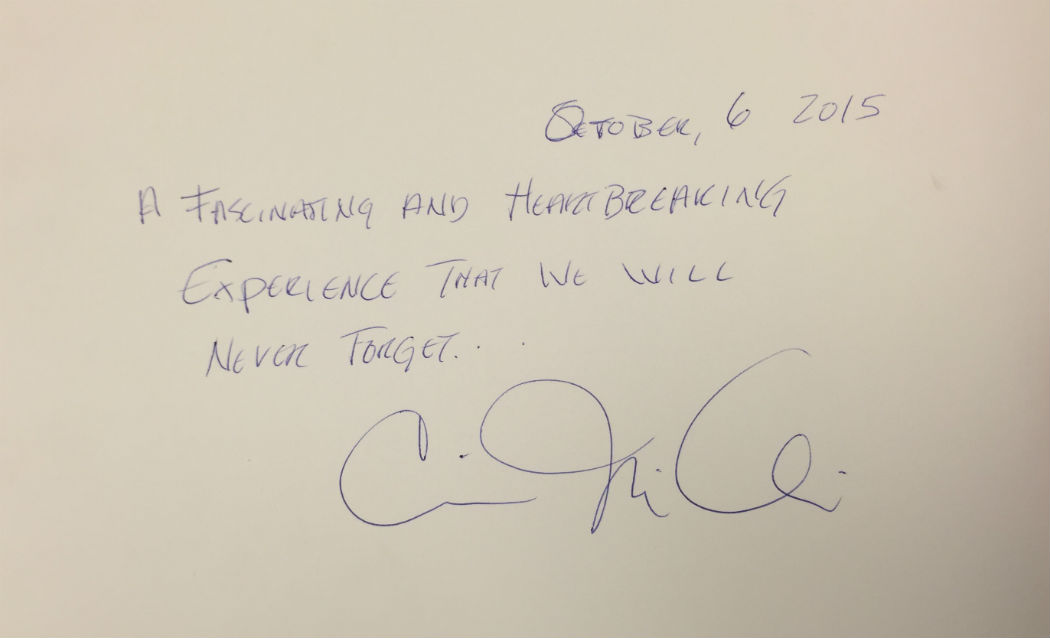 October, 6 2015
A FASCINATING AND HEARTBREAKING
EXPERIENCE THAT WE WILL
NEVER FORGET...